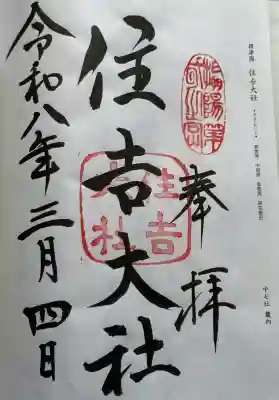 摂津國 住吉大社
中七社 龍内
奉拝
住吉大社
住吉大社
令和八年三月四日